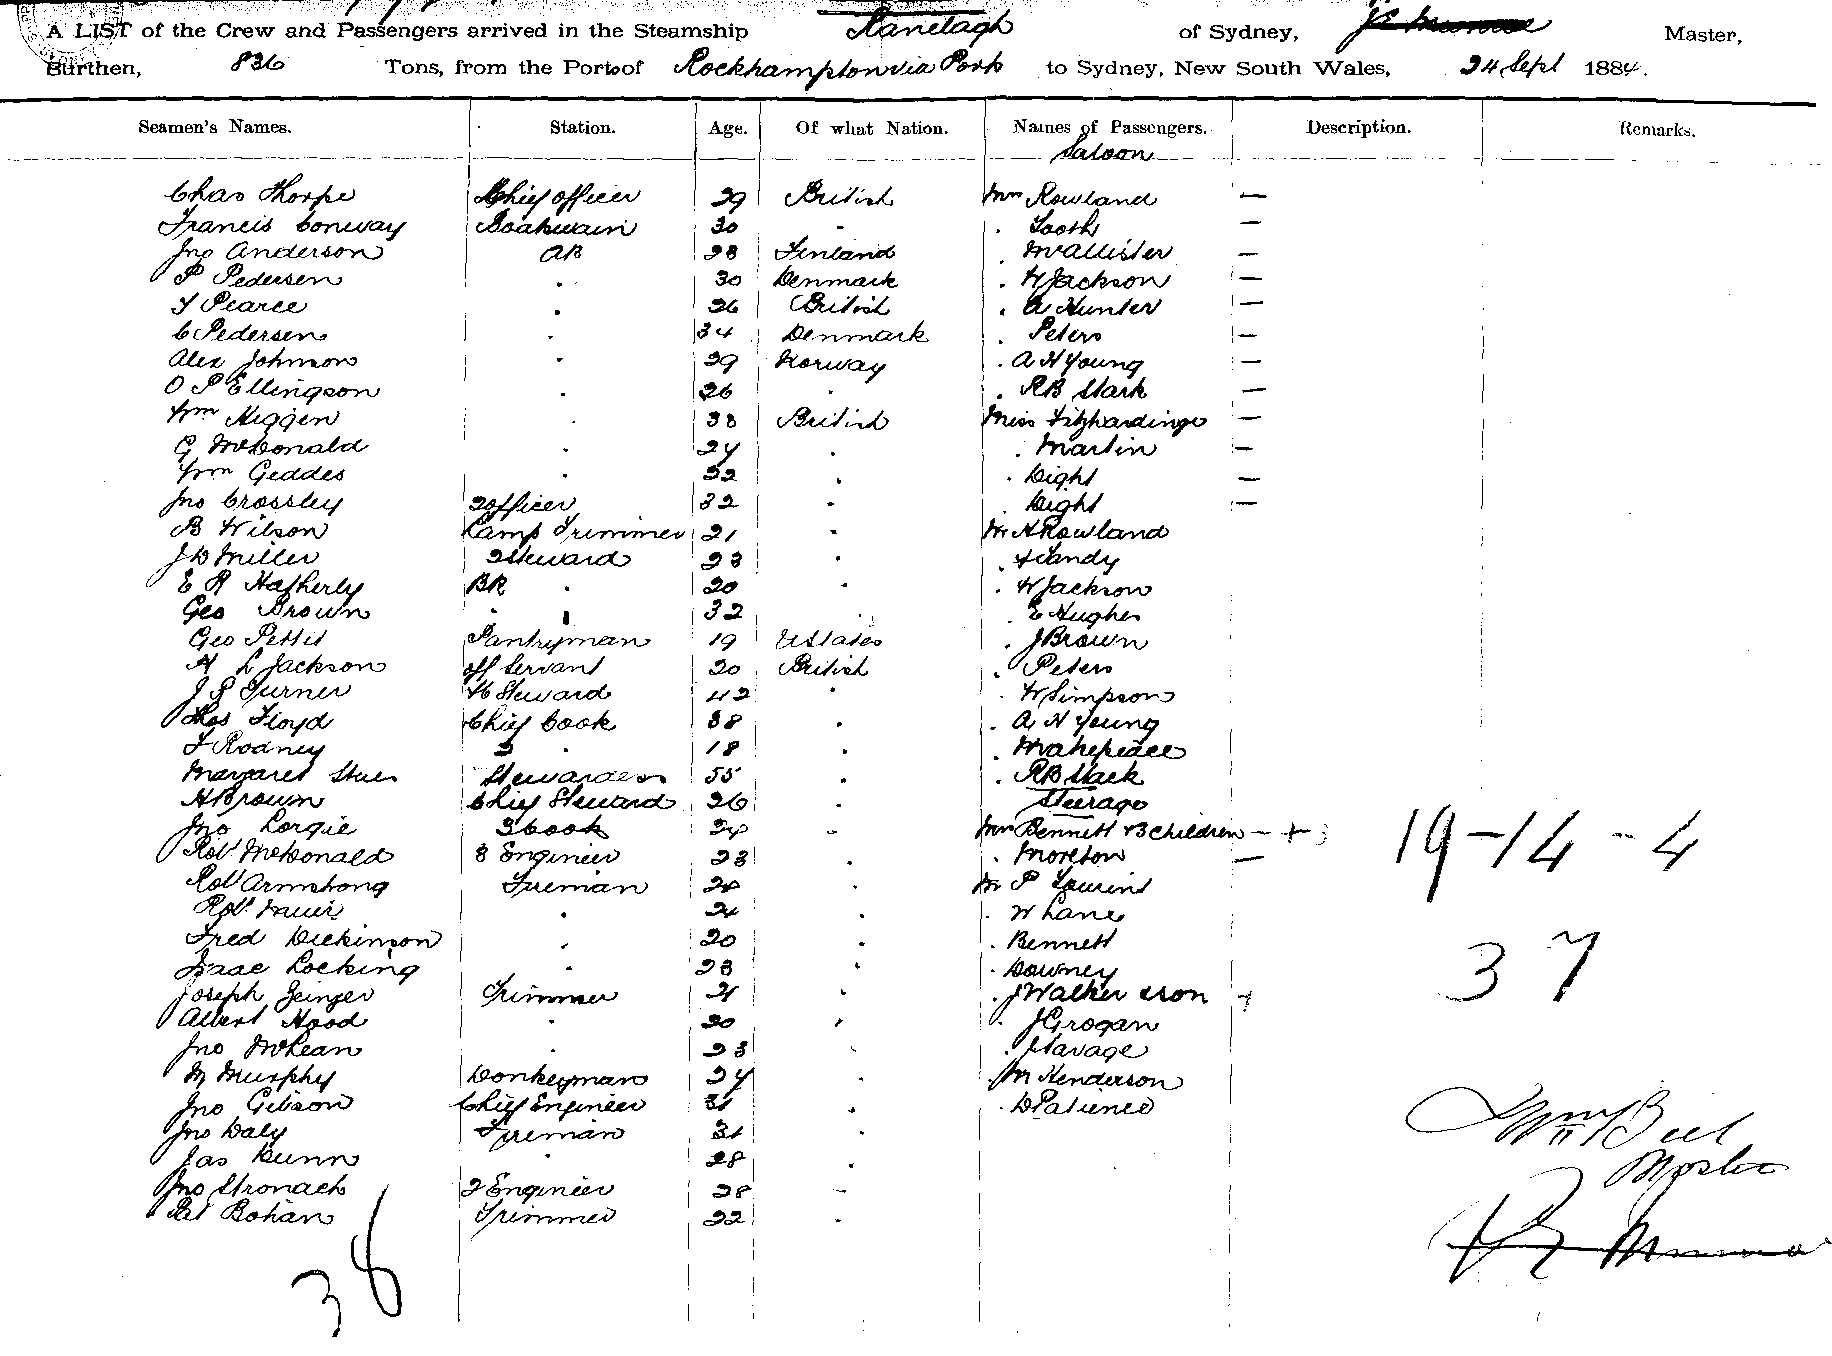 A LIST of the Crew and Passengers arrived in the Steamship Ranelagh of Sydney, Master,
Burthen, 836 Tons, from the Port of Rockhampton via Ports to Sydney, New South Wales, 24 Sept 1884.
Seamen's Names. Station. Age. Of what Nation. Names of Passengers. Description. Remarks.
Saloon
Chas Thorpe Chief officer 29 British Mrs Rowland —
Francis Conway Boatswain 30 " " Tooth —
Jno Anderson AB 28 Finland " McAllister —
P Pedersen " 30 Denmark " W Jackson —
T Pearce " 26 British " A Hunter —
C Pedersen " 34 Denmark " Peters —
Alex Johnson " 29 Norway " A H Young —
O P Ellingson " 26 " " RB Stark —
Wm Higgen " 38 British Miss Fitzhardinge —
G McDonald " 24 " " Martin —
Wm Geddes " 22 " Dight —
Jno Crossley 2 officer 32 " " Dight —
B Wilson Lamp Trimmer 21 " Mr H Rowland
J D Miller 2 Steward 23 " " Landy
E R Hatherly BR " 20 " " W Jackson
Geo Brown " " 32 " " E Hughes
Geo Pettit Pantryman 19 U States " J Brown
H L Jackson off Servant 20 British " Peters
J P Turner St Steward 42 " " W Simpson
Thos Floyd Chief Cook 38 " " A H Young
F Rodney 2 " 18 " " Makepeace
Margaret Stewardess 55 " " RB Stark
H Brown Chief Steward 26 " Steerage
Jno Lorgie 3 Cook 24 " Mrs Bennett & 3 Children — + 3 19 - 14 - 4
Robt McDonald 3 Engineer 23 " " Moreton —
Robt Armstrong Fireman 24 " Mr P
Robt Muir " 24 " " W Lane
Fred Dickinson " 20 " " Bennett 37
Isaac Locking " 23 " " Downey
Joseph Geinger Trimmer 21 " " J Walker & son +
Albert Hood " 20 " " J Grogan
Jno McLean " 23 " " J Savage
M Murphy Donkeyman 24 " " M Henderson
Jno Gibson Chief Engineer 31 " " D Patience
Jno Daly Fireman 31 "
Jas Dunn " 28 "
Master
Jno Stronach 2 Engineer 28 "
Pat Bohan Trimmer 22 "
38